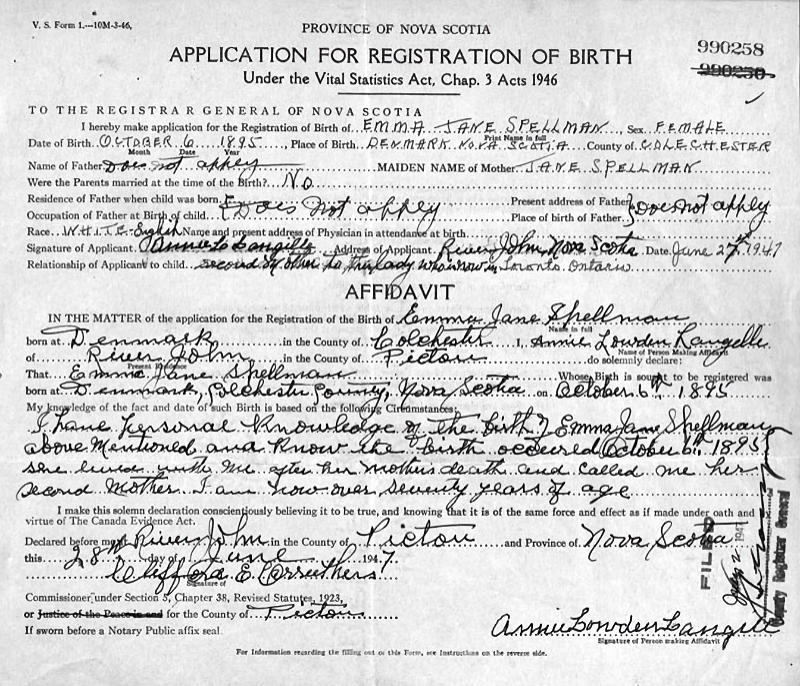 V. S. Form 1.—10M-3-46.
PROVINCE OF NOVA SCOTIA
APPLICATION FOR REGISTRATION OF BIRTH
990258
990250
Under the Vital Statistics Act, Chap. 3 Acts 1946
TO THE REGISTRAR GENERAL OF NOVA SCOTIA
I hereby make application for the Registration of Birth of EMMA JANE SPELLMAN Sex FEMALE
Print Name in full
Date of Birth OCTOBER 6 1895 Place of Birth DENMARK NOVA SCOTIA County of COLECHESTER
Month Date Year
Name of Father Does not apply MAIDEN NAME of Mother JANE SPELLMAN
Were the Parents married at the time of the Birth? No
Residence of Father when child was born Present address of Father
Does not apply Does not apply
Occupation of Father at Birth of child Place of birth of Father
Race WHITE-English Name and present address of Physician in attendance at birth
Signature of Applicant Annie L Langille Address of Applicant River John, Nova Scotia Date June 27th 1947
Relationship of Applicant to child second Mother to this lady who is now in Toronto Ontario
AFFIDAVIT
IN THE MATTER of the application for the Registration of the Birth of Emma Jane Spellman
Name in full
born at Denmark in the County of Colchester I, Annie Lowden Langille
Name of Person Making Affidavit
of River John in the County of Pictou do solemnly declare:
Present Residence
That Emma Jane Spellman Whose Birth is sought to be registered was
born at Denmark, Colchester County, Nova Scotia on October 6th 1895
My knowledge of the fact and date of such Birth is based on the following Circumstances:
I have personal knowledge of the birth of Emma Jane Spellman
above Mentioned and know the birth occured October 6th 1895
she lived with me after her mother's death and called me her
second Mother. I am now over seventy years of age
I make this solemn declaration conscientiously believing it to be true, and knowing that it is of the same force and effect as if made under oath and by
virtue of The Canada Evidence Act.
Declared before me at River John in the County of Pictou and Province of Nova Scotia
this 28th day of June 1947
Clifford E Carruthers
Signature of
Commissioner under Section 5, Chapter 38, Revised Statutes, 1923,
or Justice of the Peace in and for the County of Pictou
If sworn before a Notary Public affix seal.
Annie Lowden Langille
Signature of Person making Affidavit
For Information regarding the filling out of this Form, see Instructions on the reverse side.
FILED
July 2 1947
Deputy Registrar General